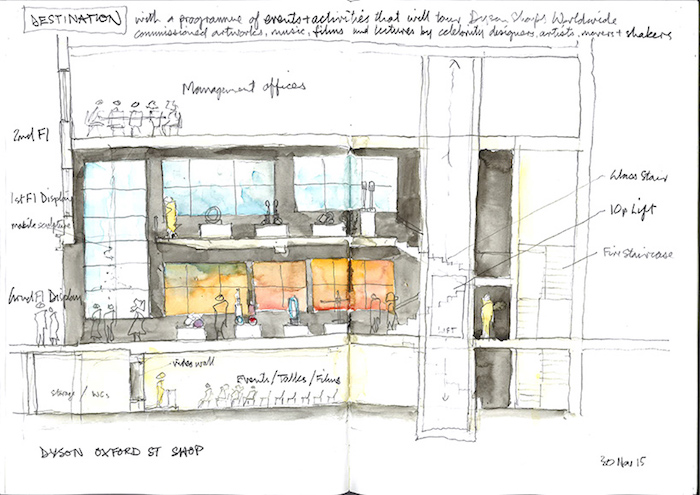 DESTINATION with a programme of events + activities that will tour Dyson Shops Worldwide
commissioned artworks, music, films and lectures by celebrity designers, artists, movers + shakers
Management offices
2nd Fl
1st Fl Display
mobile sculpture
Grnd Fl Display
Glass Stair
10p Lift
Fire Staircase
LIFT
video wall
Storage / WCs
Events/Talks/Films
DYSON OXFORD ST SHOP
30 Nov 15